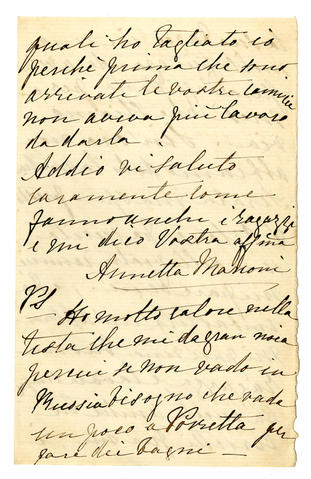 quali ho tagliato io
perchè prima che sono
arrivate le vostre camicie
non aveva più lavoro
da darla.
Addio vi saluto
caramente come
fanno anche i ragazzi
e mi dico Vostra affma
Annetta Manoni
PS Ho molto calore nella
testa che mi da gran noia
percui se non vado in
Russia bisogno che vada
un poco a Porretta per
fare dei bagni —